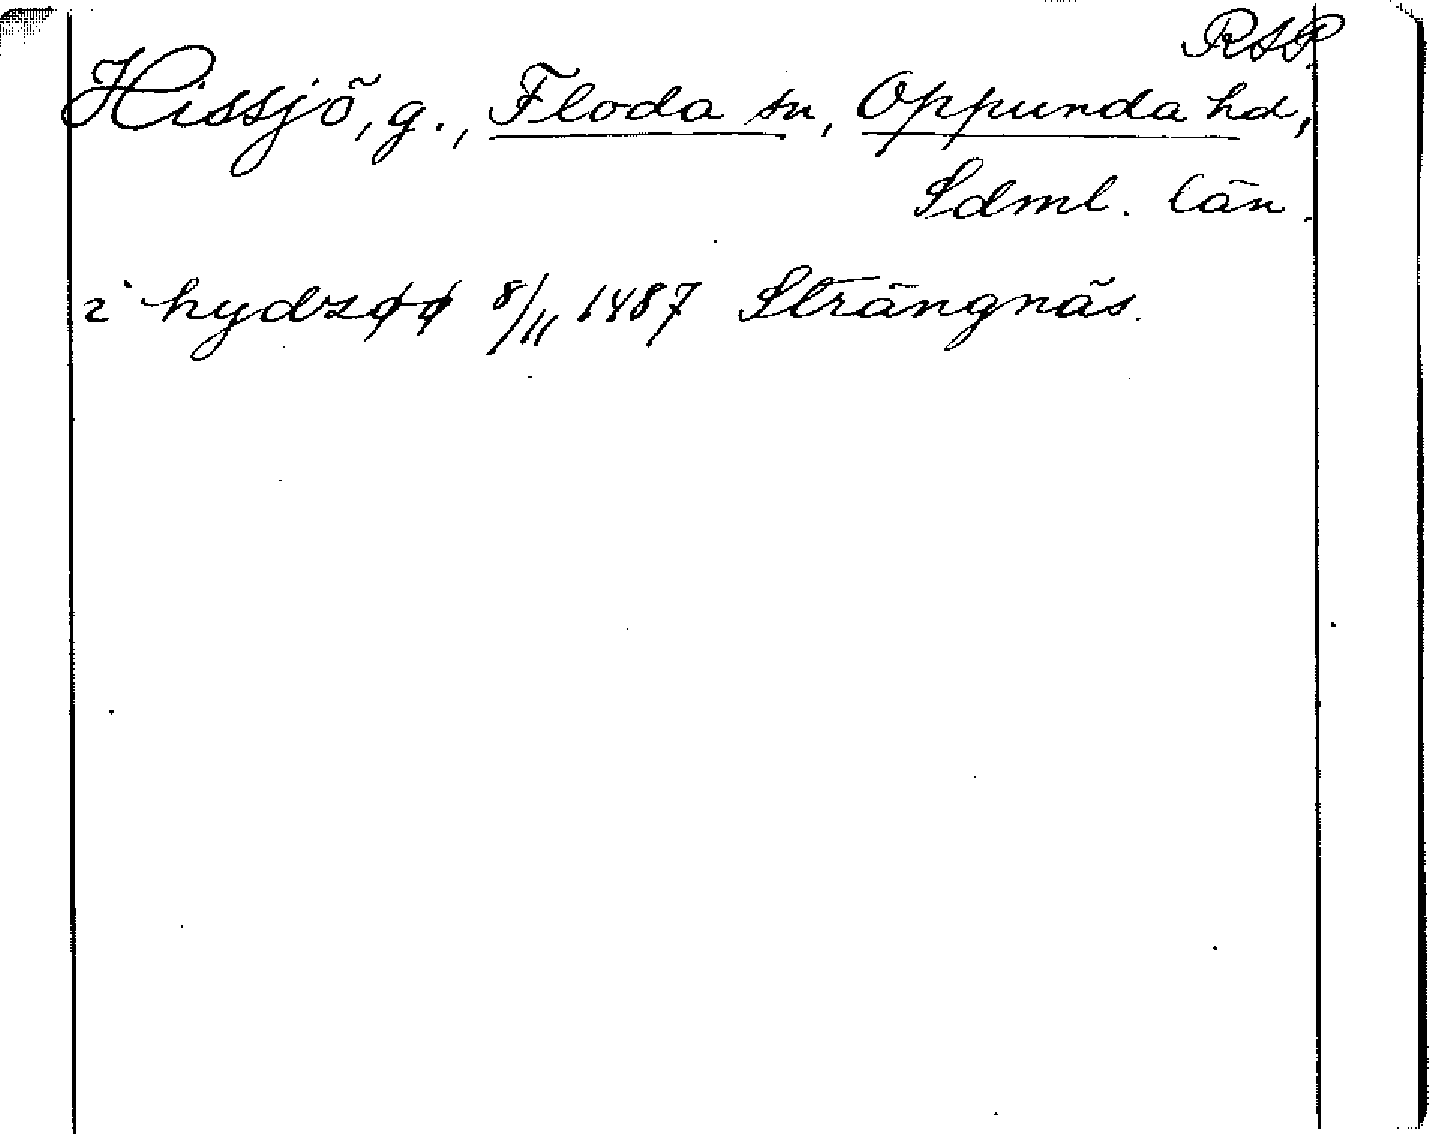 RAP.
Hissjö, g., Floda sn, Oppunda hd,
Sdml. län.
i hydzøø 8/11 1487 Strängnäs.